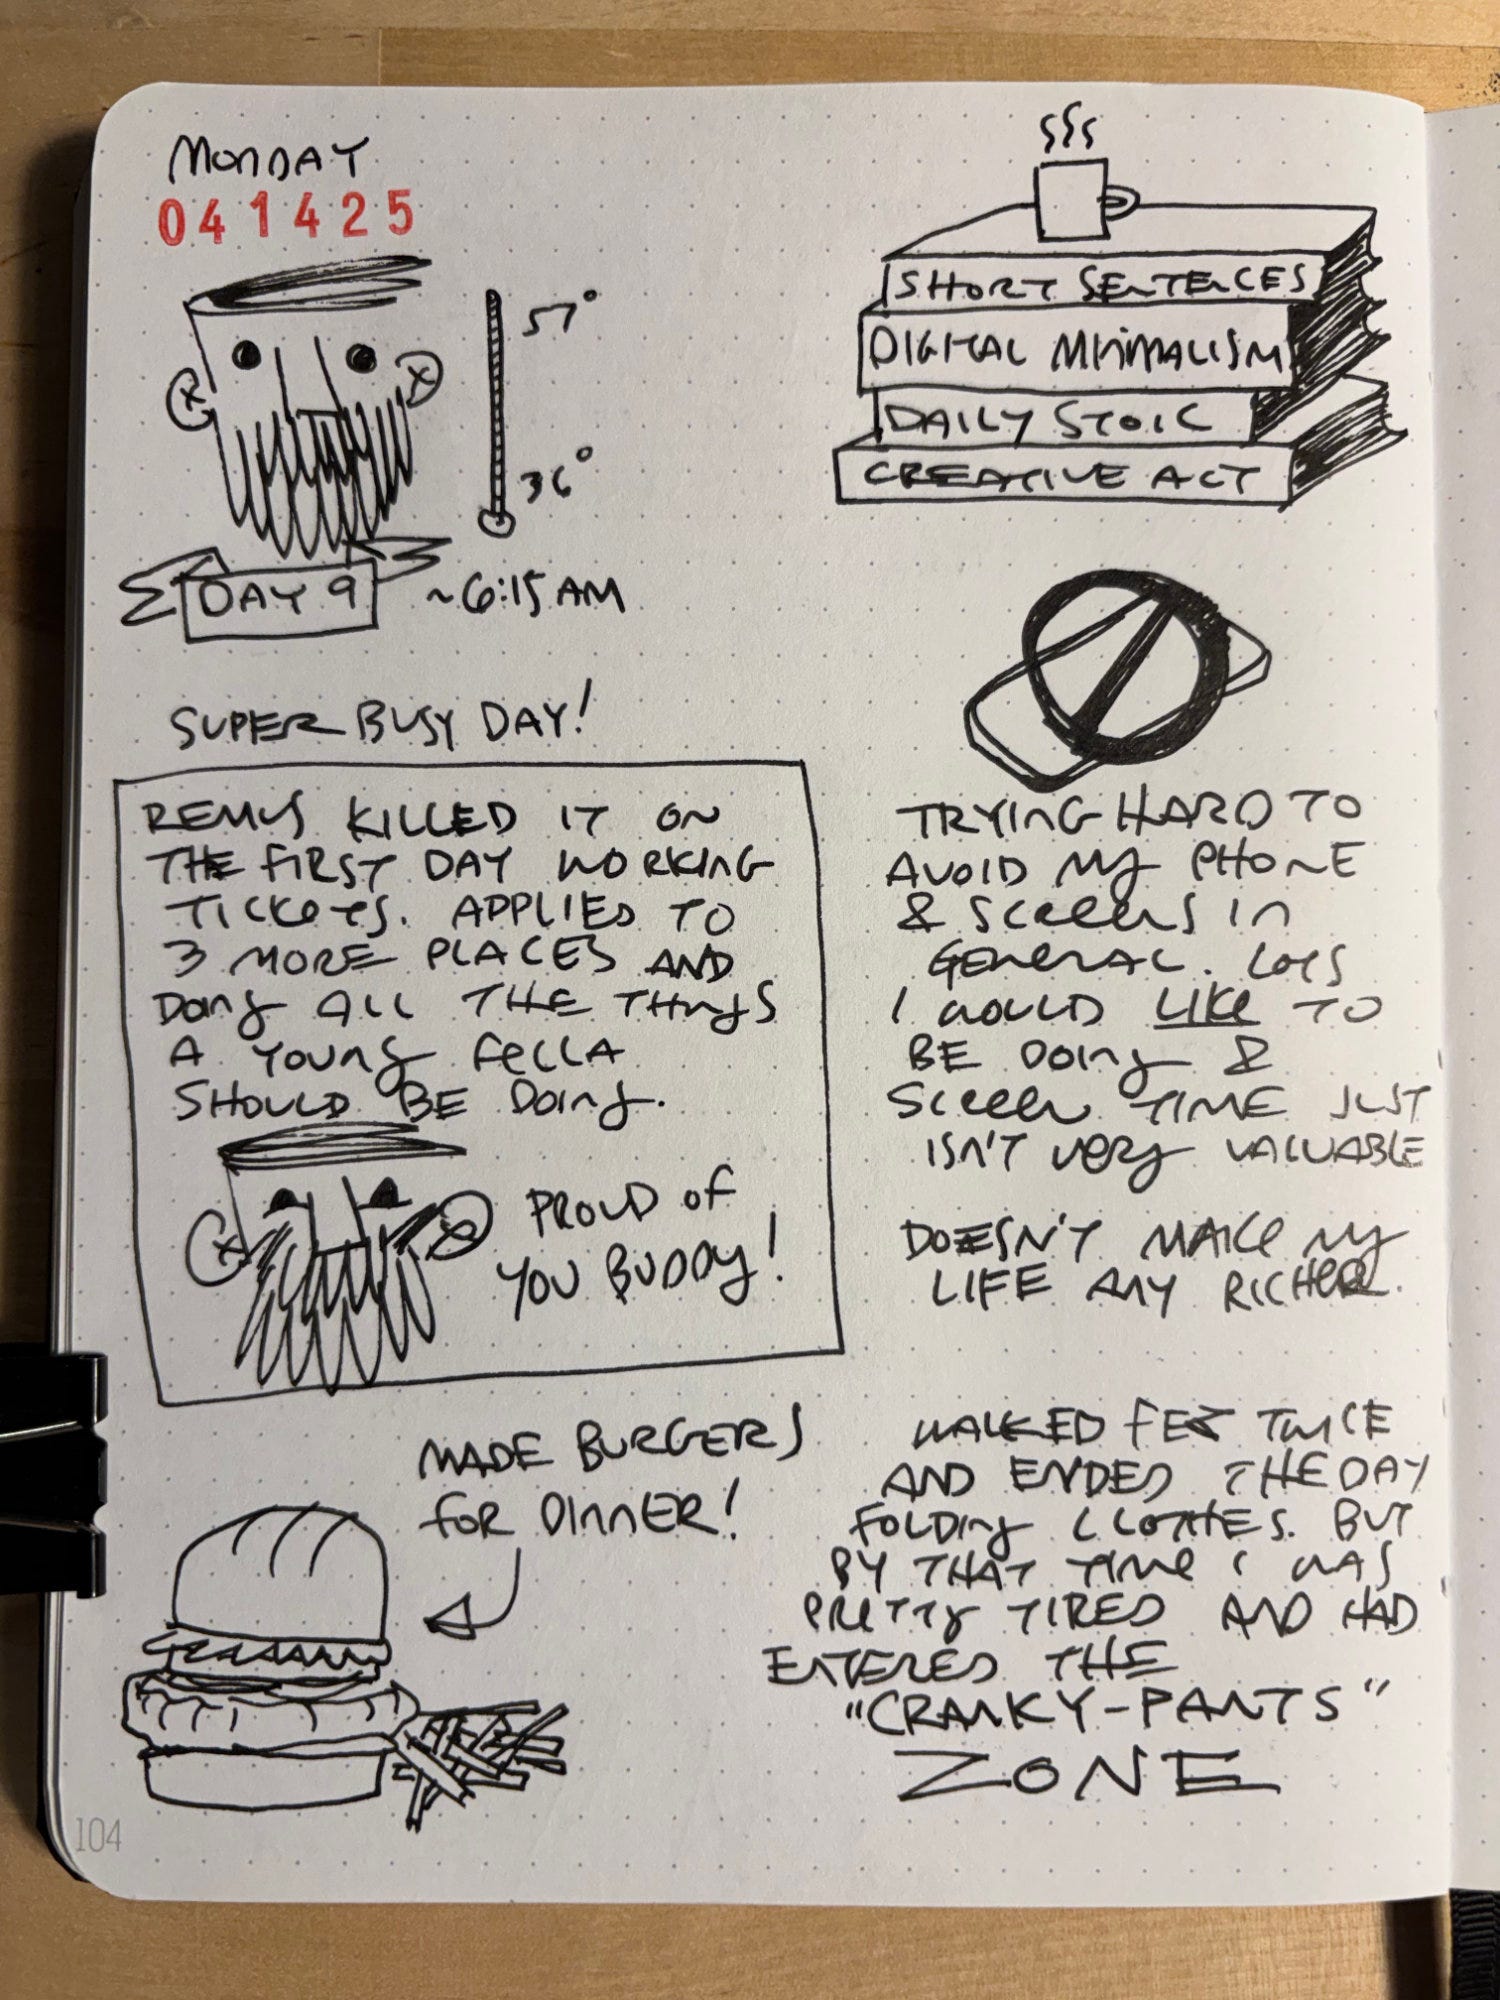 MONDAY
041425
57°
36°
DAY 9
~6:15 AM
SUPER BUSY DAY!
REMUS KILLED IT ON
THE FIRST DAY WORKING
TICKETS. APPLIED TO
3 MORE PLACES AND
DOING ALL THE THINGS
A YOUNG FELLA
SHOULD BE DOING.
PROUD OF
YOU BUDDY!
MADE BURGERS
FOR DINNER!
104
SHORT SENTENCES
DIGITAL MINIMALISM
DAILY STOIC
CREATIVE ACT
TRYING HARD TO
AVOID MY PHONE
& SCREENS IN
GENERAL. LOTS
I WOULD LIKE TO
BE DOING &
SCREEN TIME JUST
ISN'T VERY VALUABLE
DOESN'T MAKE MY
LIFE ANY RICHER.
WALKED FEZ TWICE
AND ENDED THE DAY
FOLDING CLOTHES. BUT
BY THAT TIME I WAS
PRETTY TIRED AND HAD
ENTERED THE
"CRANKY-PANTS"
ZONE